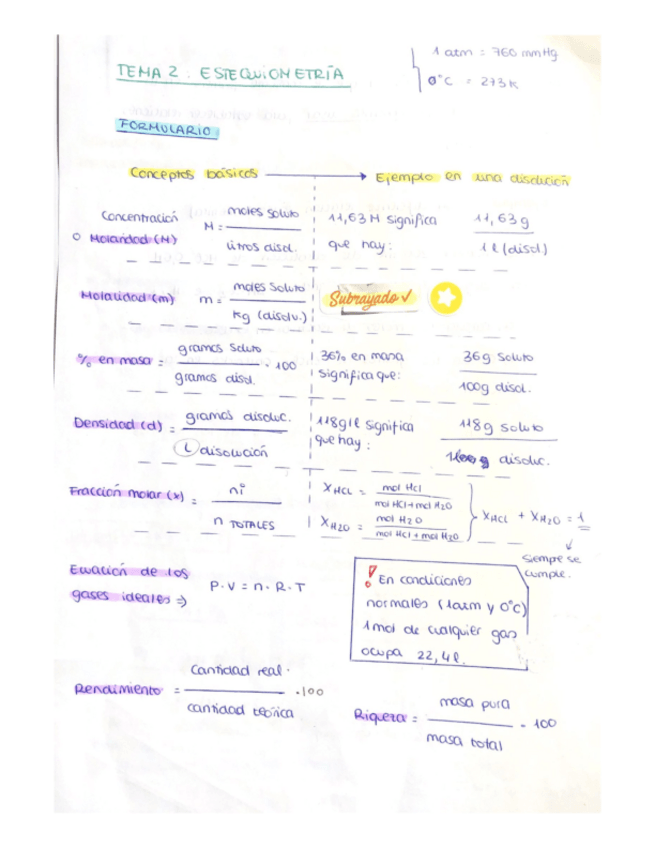 1 atm = 760 mmHg
TEMA 2 : ESTEQUIOMETRÍA
0°C = 273K
FORMULARIO
Conceptos básicos → Ejemplo en una disolución
Concentración
Molaridad (M)
M = moles soluto / litros disol.
11,63 M significa que hay: 11,63 g / 1 l (disol)
Molalidad (m)
m = moles soluto / Kg (disolv.)
Subrayado ✓
% en masa = gramos soluto / gramos disol. · 100
36% en masa significa que: 36g soluto / 100g disol.
Densidad (d) = gramos disoluc. / L disolución
118g/l significa que hay: 118g soluto / disoluc.
Fracción molar (x) = ni / n TOTALES
XHCl = mol HCl / mol HCl + mol H2O
XH2O = mol H2O / mol HCl + mol H2O
XHCl + XH2O = 1
Siempre se cumple.
Ecuación de los gases ideales ⇒ P·V = n·R·T
! En condiciones
normales (1atm y 0°C)
1 mol de cualquier gas
ocupa 22,4 l.
Rendimiento = Cantidad real / cantidad teórica · 100
Riqueza = masa pura / masa total · 100